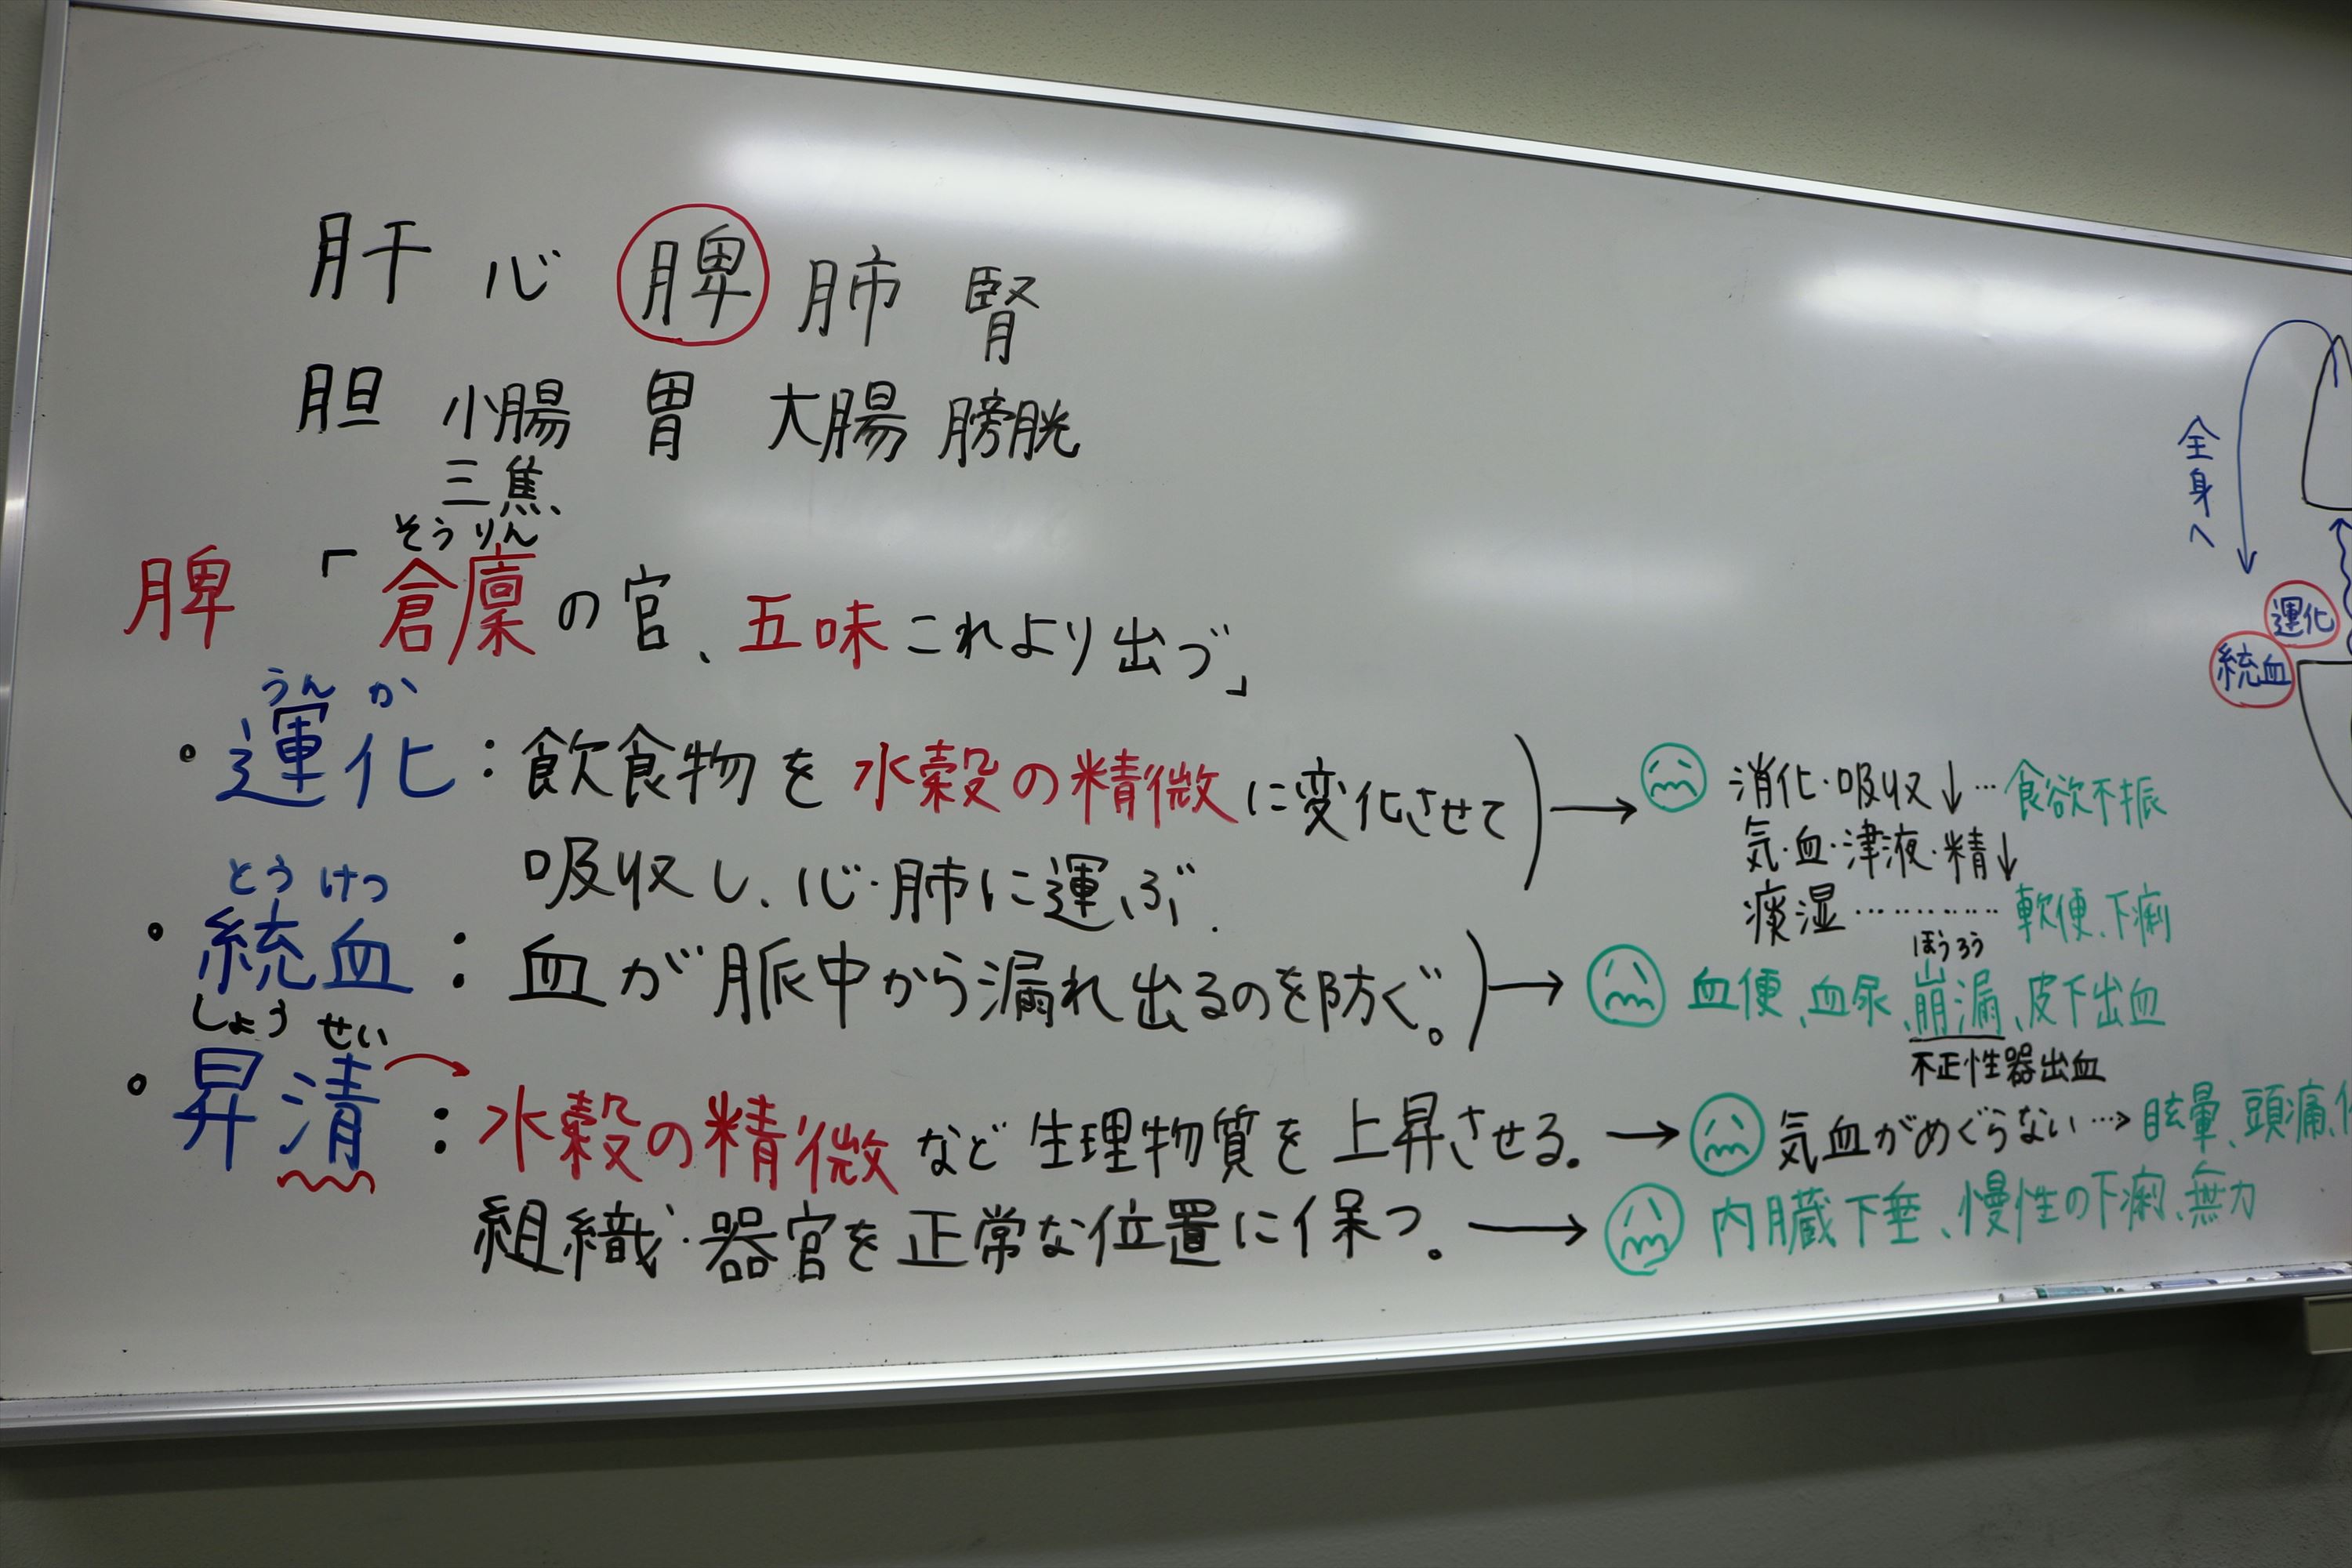 肝 心 脾 肺 腎
胆 小腸 胃 大腸 膀胱
三焦
そうりん
脾 「倉廩の官、五味これより出づ」
うんか
・運化：飲食物を水穀の精微に変化させて
吸収し、心・肺に運ぶ.
とうけつ
・統血：血が脈中から漏れ出るのを防ぐ。
しょうせい
・昇清：水穀の精微など生理物質を上昇させる.
組織・器官を正常な位置に保つ.
→ 消化・吸収↓…食欲不振
気・血・津液・精↓
痰湿…………軟便、下痢
ぼうろう
→ 血便、血尿、崩漏、皮下出血
不正性器出血
→ 気血がめぐらない…→眩暈、頭痛、
→ 内臓下垂、慢性の下痢、無力
全身へ
運化
統血